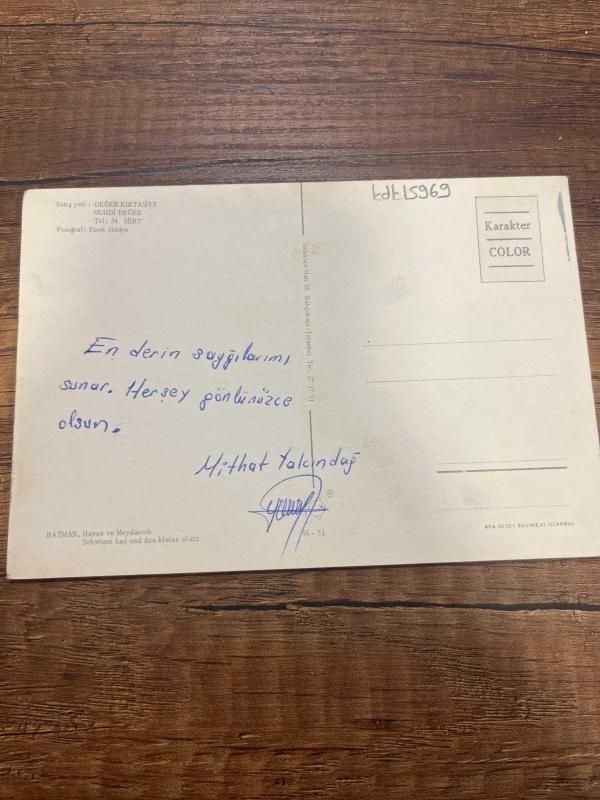 Satış yeri : DEĞER KIRTASİYE
MUHDİ DEĞER
Tel: 34 SİİRT
Fotoğraf: Emek Stüdyo
kdk15969
Karakter
COLOR
En derin saygılarımı
sunar. Herşey gönlünüzce
olsun.
Mithat Yalcındağ
BATMAN, Havuz ve Meydancık
Schwimm bad und das kleine platz
56 - 51
AYA OFSET BASIMEVİ İSTANBUL